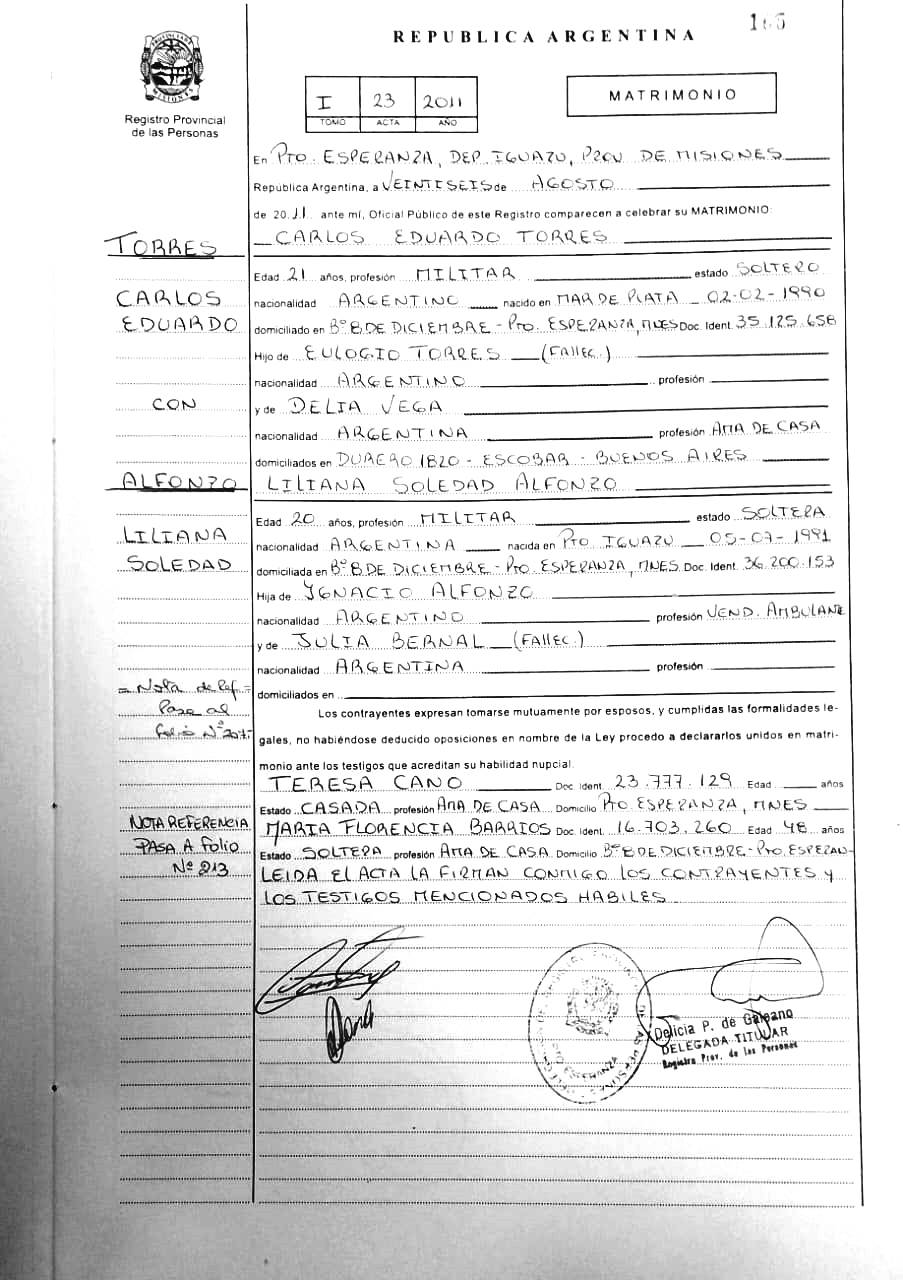 165
REPUBLICA ARGENTINA
PROVINCIA DE MISIONES
Registro Provincial
de las Personas
I 23 2011
TOMO ACTA AÑO
MATRIMONIO
En PTO. ESPERANZA, DEP. IGUAZU, PROV. DE MISIONES
Republica Argentina, a VEINTISEIS de AGOSTO
de 2011 ante mí, Oficial Público de este Registro comparecen a celebrar su MATRIMONIO:
TORRES
CARLOS EDUARDO TORRES
Edad 21 años, profesión MILITAR estado SOLTERO
CARLOS
nacionalidad ARGENTINO nacido en MAR DE PLATA 02-02-1990
EDUARDO
domiciliado en Bº 8 DE DICIEMBRE - PTO. ESPERANZA, MNES Doc. Ident. 35.125.658
Hijo de EULOGIO TORRES (FALLEC.)
nacionalidad ARGENTINO profesión
CON
y de DELIA VEGA
nacionalidad ARGENTINA profesión AMA DE CASA
domiciliados en DURERO 1820 - ESCOBAR - BUENOS AIRES
ALFONZO
LILIANA SOLEDAD ALFONZO
Edad 20 años, profesión MILITAR estado SOLTERA
LILIANA
nacionalidad ARGENTINA nacida en PTO IGUAZU 05-07-1991
SOLEDAD
domiciliada en Bº 8 DE DICIEMBRE - PTO. ESPERANZA, MNES. Doc. Ident. 36.200.153
Hija de IGNACIO ALFONZO
nacionalidad ARGENTINO profesión VEND. AMBULANTE
y de JULIA BERNAL (FALLEC.)
nacionalidad ARGENTINA profesión
= Nota de Ref. =
Pasa al
folio Nº 207.-
domiciliados en
Los contrayentes expresan tomarse mutuamente por esposos, y cumplidas las formalidades le-
gales, no habiéndose deducido oposiciones en nombre de la Ley procedo a declararlos unidos en matri-
monio ante los testigos que acreditan su habilidad nupcial.
TERESA CANO Doc. Ident. 23.777.129 Edad años
Estado CASADA profesión AMA DE CASA Domicilio PTO. ESPERANZA, MNES
NOTA REFERENCIA
PASA A FOLIO
Nº 213
MARIA FLORENCIA BARRIOS Doc. Ident. 16.703.260 Edad 48 años
Estado SOLTERA profesión AMA DE CASA Domicilio Bº 8 DE DICIEMBRE - PTO. ESPERAN-
LEIDA EL ACTA LA FIRMAN CONMIGO LOS CONTRAYENTES Y
LOS TESTIGOS MENCIONADOS HABILES
PTO ESPERANZA
DE LAS PERSONAS
Delicia P. de Galeano
DELEGADA TITULAR
Registro Prov. de las Personas